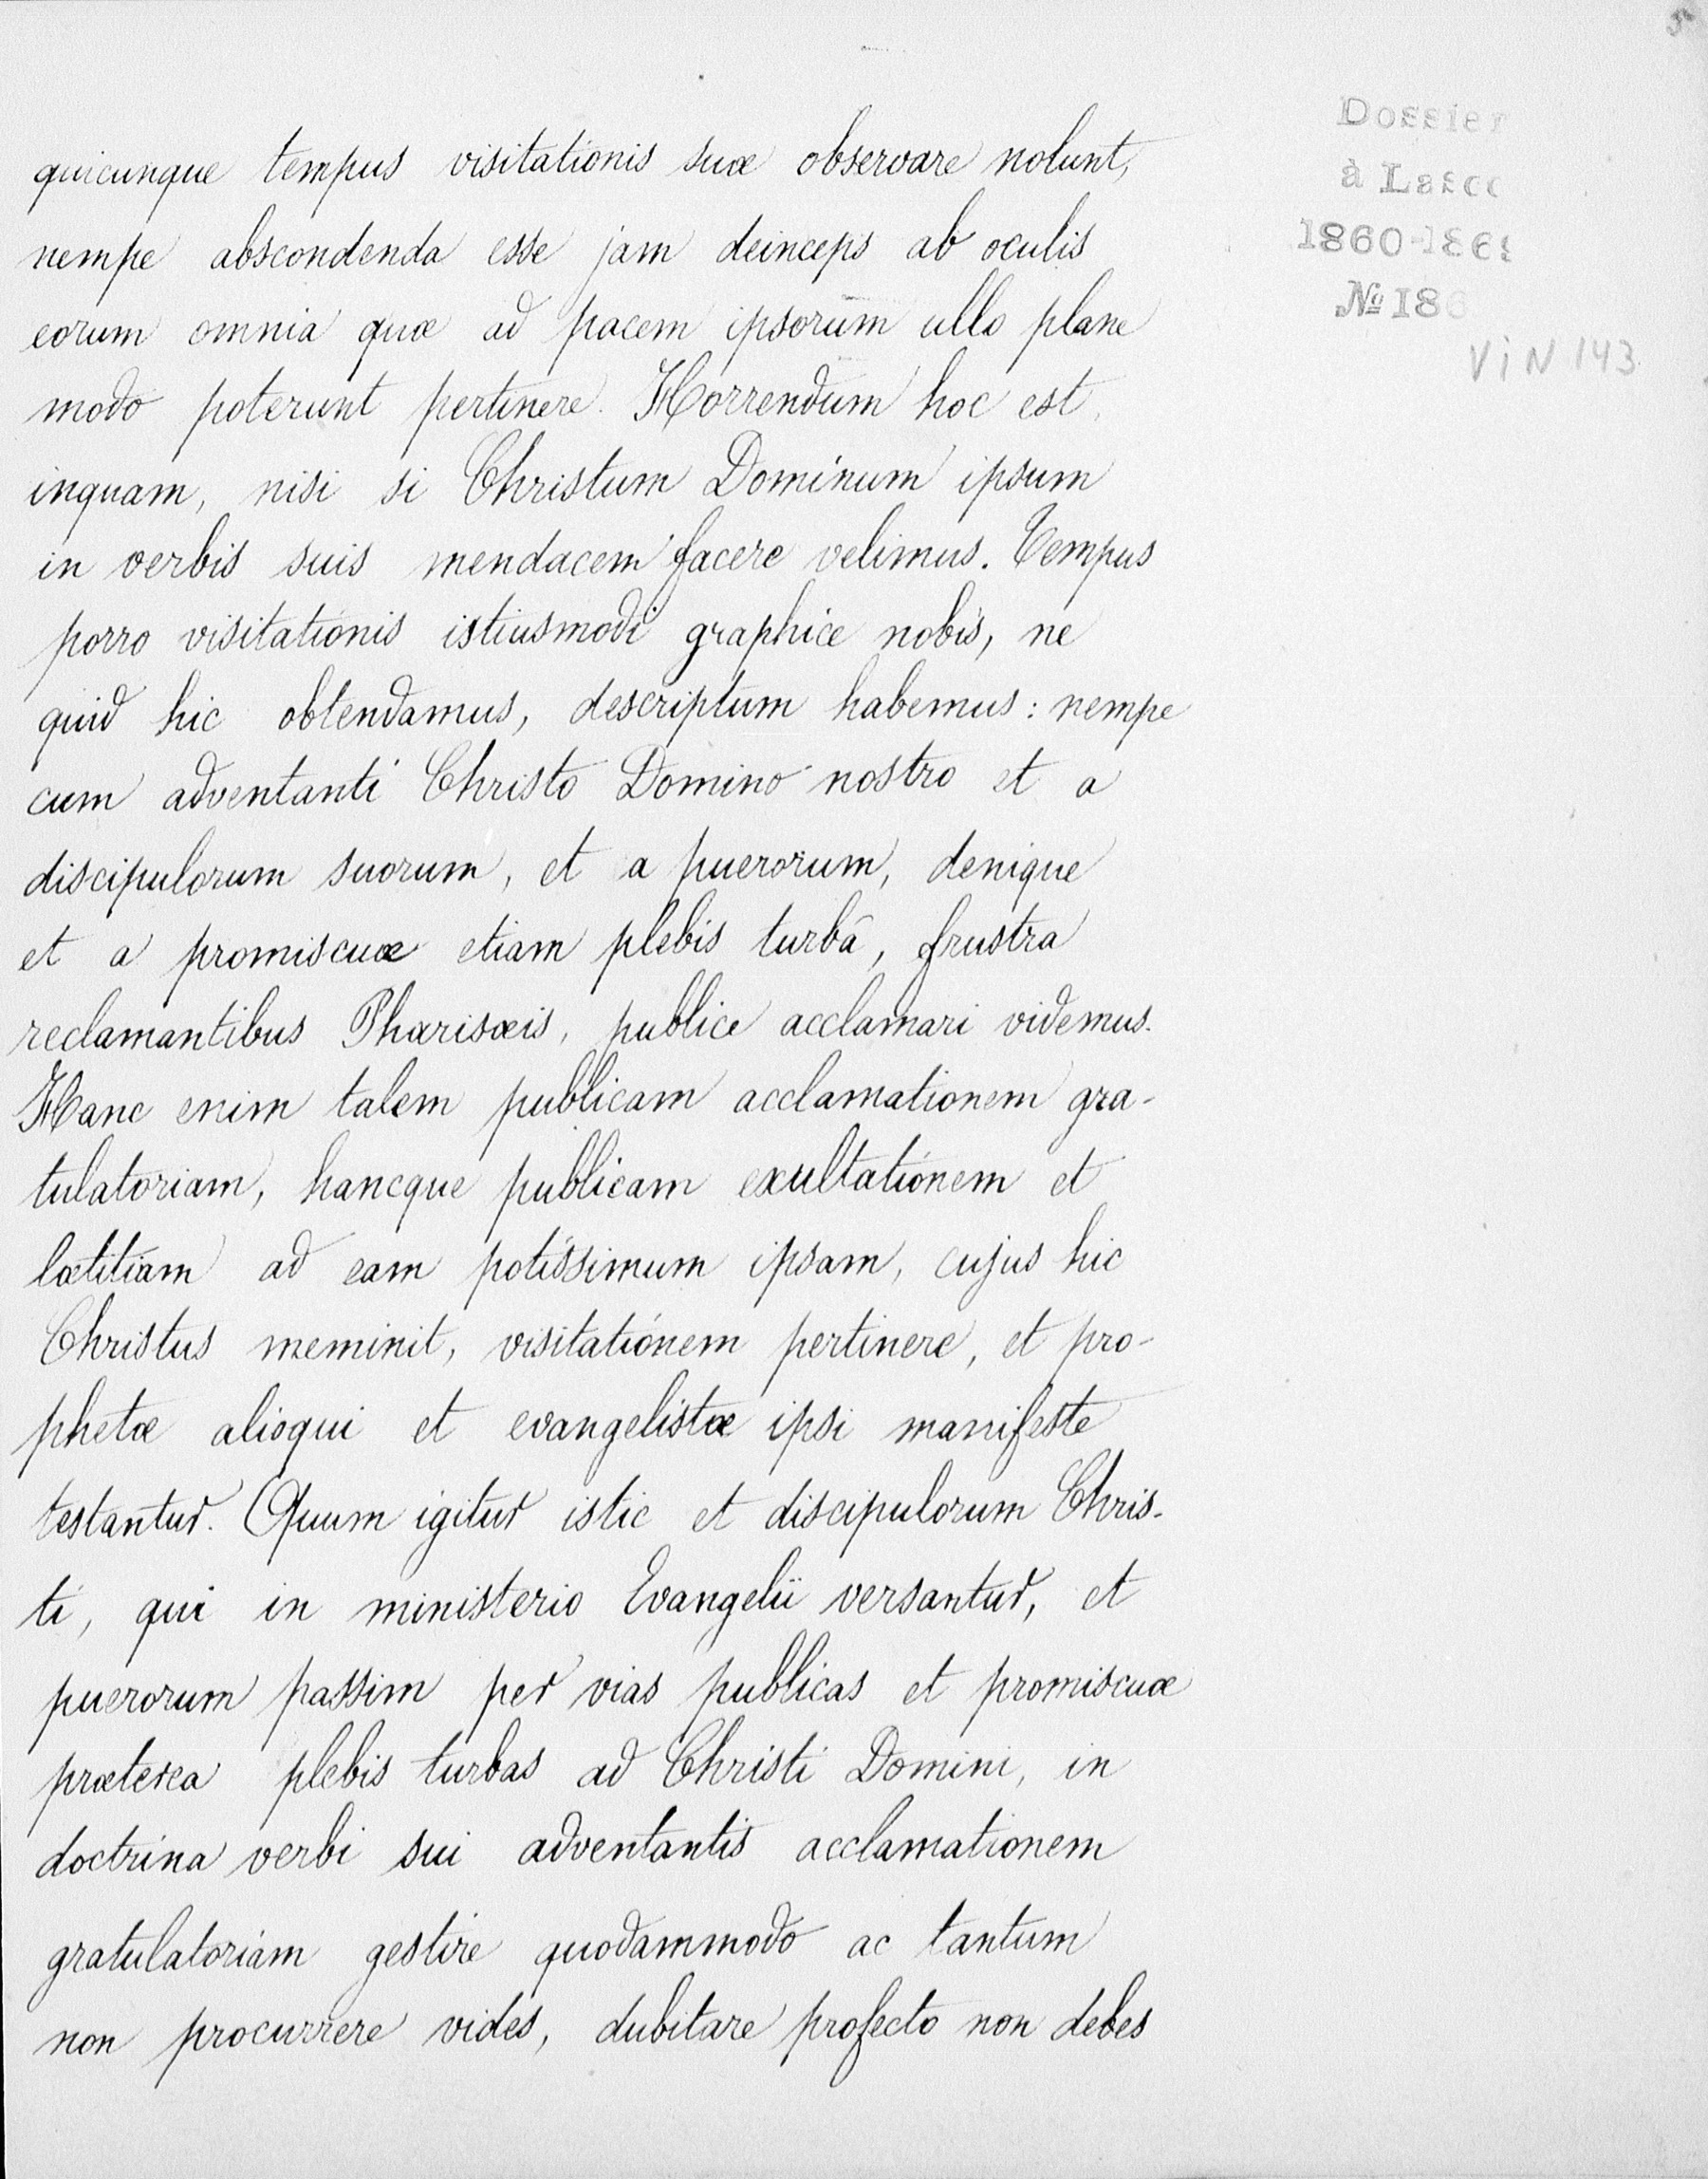 quicunque tempus visitationis suæ observare nolunt,
nempe abscondenda esse jam deinceps ab oculis
eorum omnia quæ ad pacem ipsorum ullo plane
modo poterunt pertinere. Horrendum hoc est,
inquam, nisi si Christum Dominum ipsum
in verbis suis mendacem facere velimus. Tempus
porro visitationis istiusmodi graphice nobis, ne
quid hic obtendamus, descriptum habemus: nempe
cum adventanti Christo Domino nostro et a
discipulorum suorum, et a puerorum, denique
et a promiscuæ etiam plebis turbâ, frustra
reclamantibus Pharisæis, publice acclamari videmus.
Hanc enim talem publicam acclamationem gra-
tulatoriam, hancque publicam exultationem et
lætitiam ad eam potissimum ipsam, cujus hic
Christus meminit, visitationem pertinere, et pro-
phetæ alioqui et evangelistæ ipsi manifeste
testantur. Quum igitur istic et discipulorum Chris-
ti, qui in ministerio Evangelii versantur, et
puerorum passim per vias publicas et promiscuæ
præterea plebis turbas ad Christi Domini, in
doctrina verbi sui adventantis acclamationem
gratulatoriam gestire quodammodo ac tantum
non procurrere vides, dubitare profecto non debes
5
Dossier
à Lasco
1860-186
№ 186
ViN 143